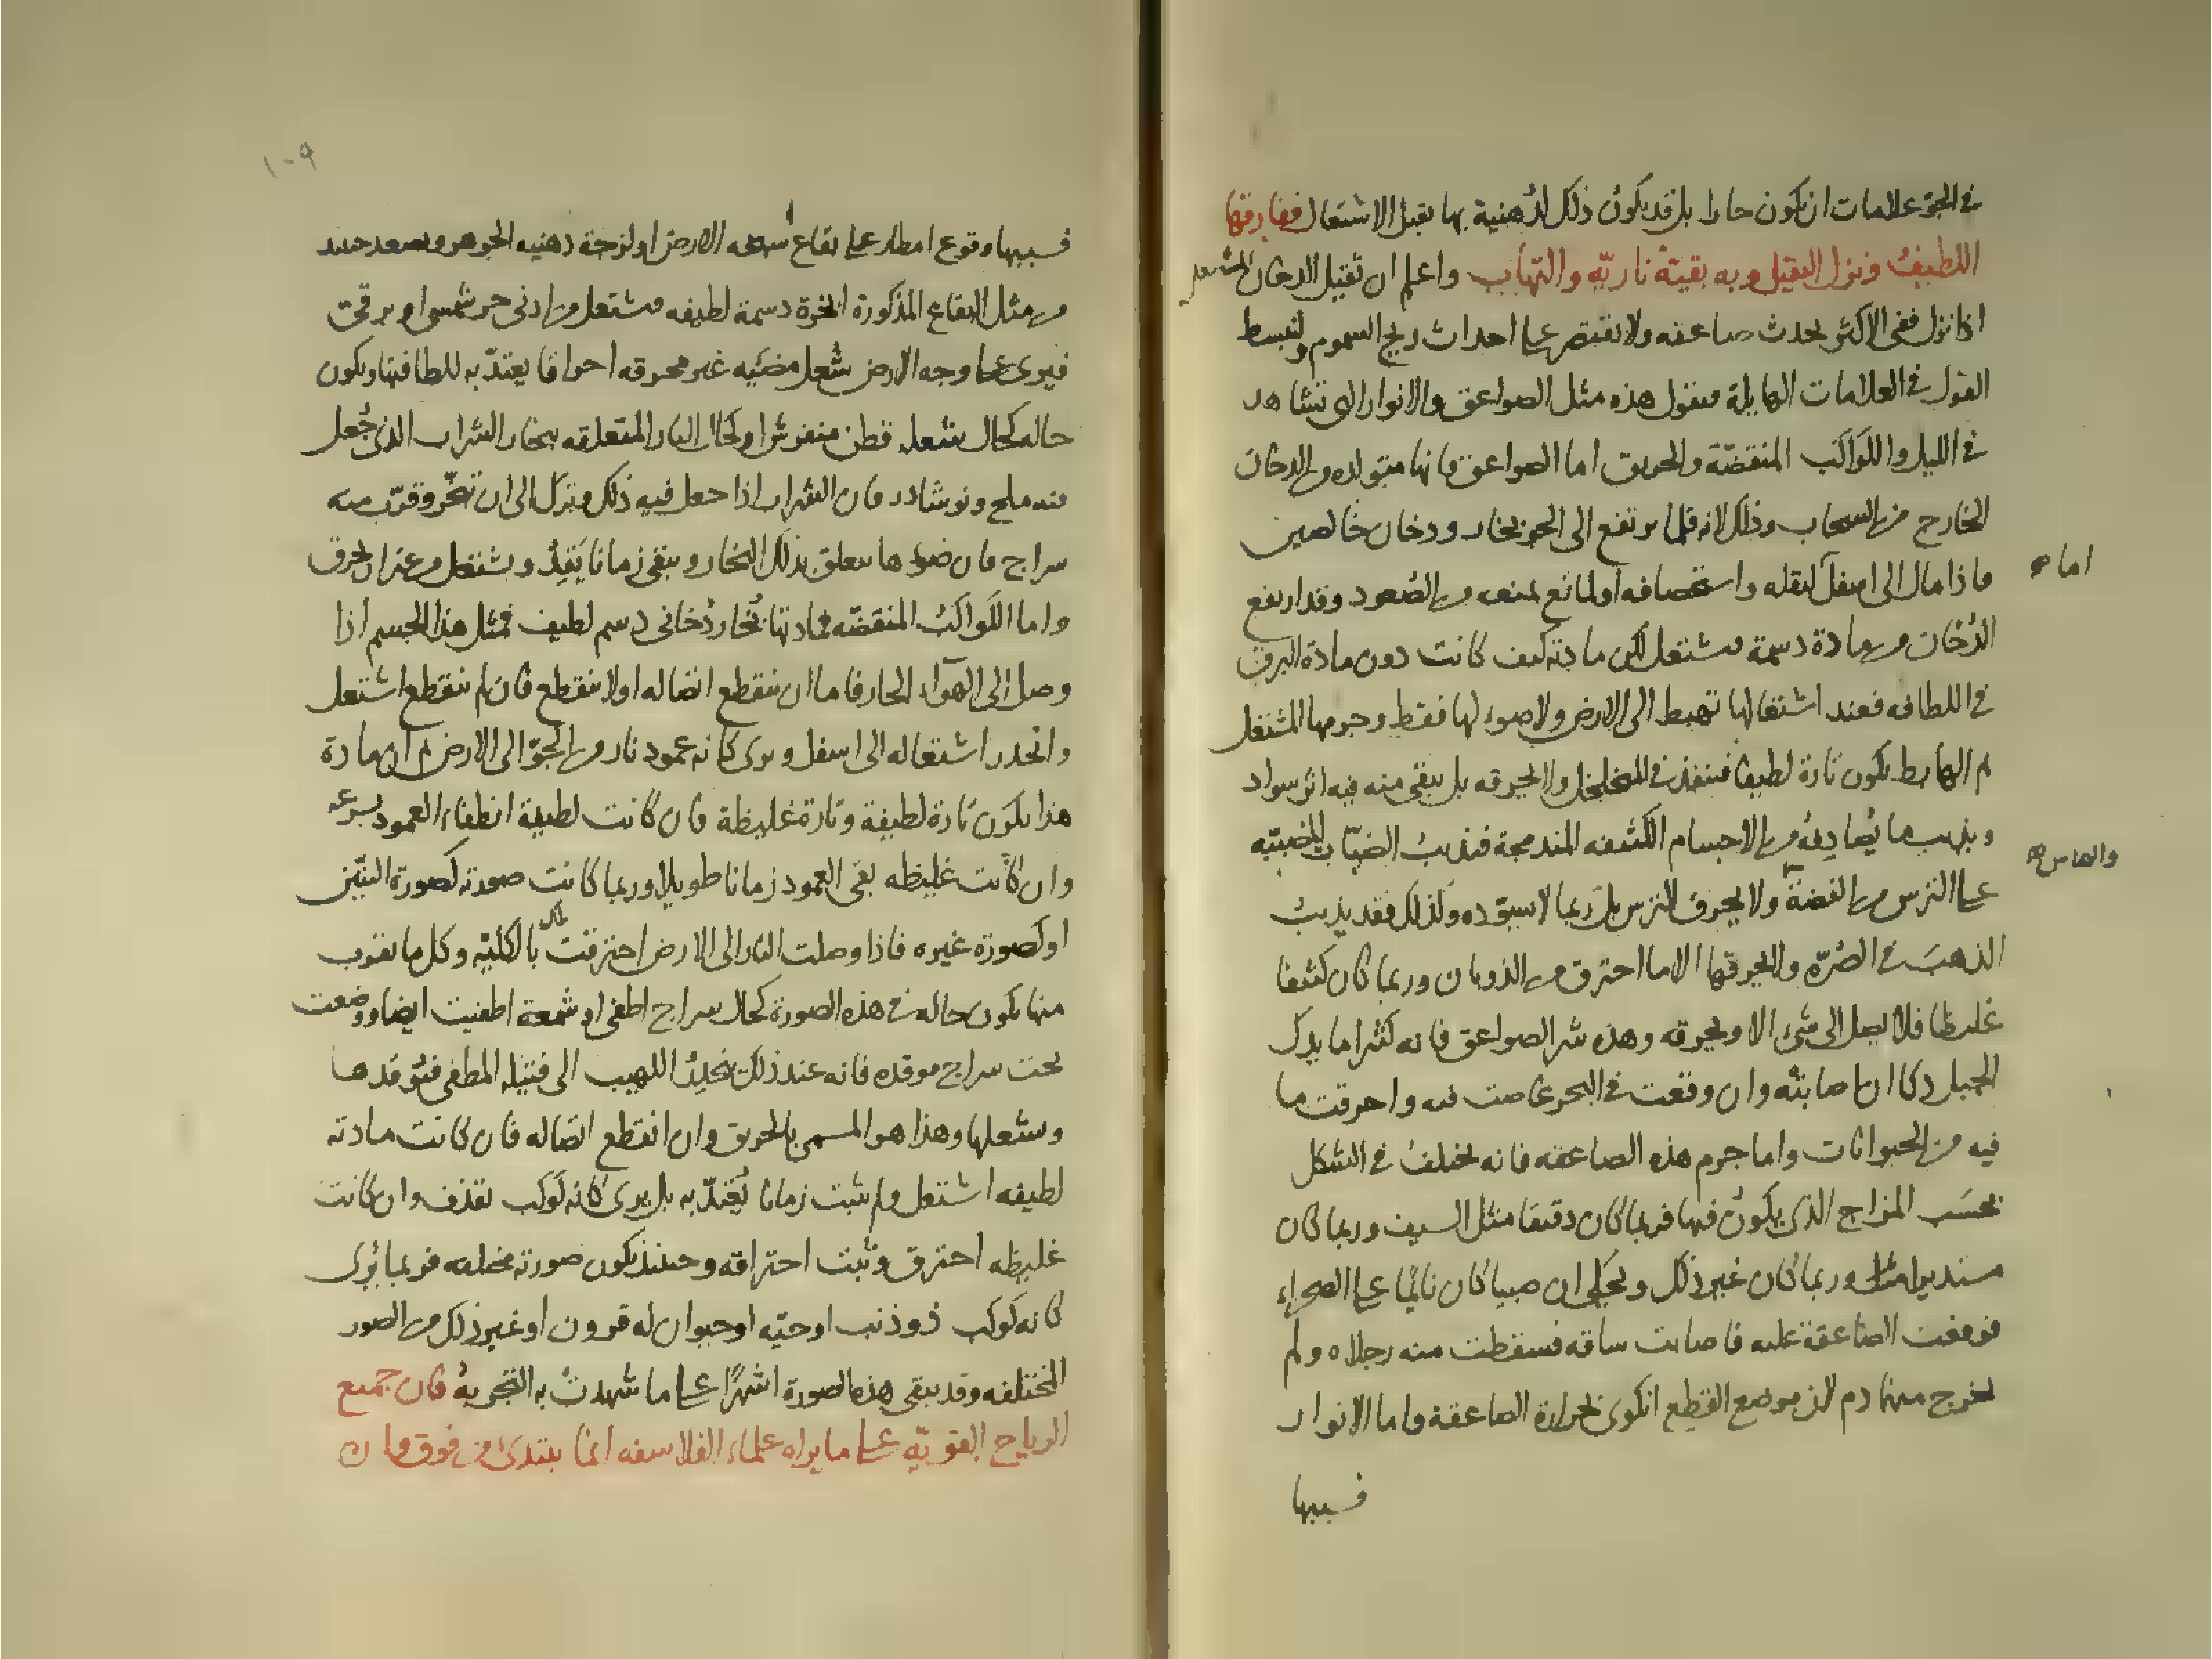 في الجو علامات ان يكون حارا بل قد يكون ذلك لدُهنية بها يقبل الاشتعال ففارقها
اللطيفُ ونزل الثقيل وبه بقيّة ناريّه والتهاب واعلم ان ثقيل الدخان المشتعل
اذا نزل ففى الاكثر يحدث صاعقه ولا يقتصر على احداث ريح السموم ولنبسط
القول في العلامات الهايلة فنقول هذه مثل الصواعق والانوار التى تشاهد
في الليل والكَواكَب المنقضّة والحريق اما الصواعق فانها متولده من الدخان
الخارج من السحاب وذلك لانه قلما يرتفع الى الجو بخار ودخان خالصين
اما
فاذا مال الى اسفل لثقله واستحصافه او لمانع يمنعه من الصُعود وقد ارتفع
الدُخان من مادة دسمة فيشتعل لكن مادته كيف كانت دون مادة البرق
في اللطافه فعند اشتعالها تهبط الى الارض ولا ضوء لها فقط وجرمها المشتعل
ثم الهابط يكون تارة لطيفا فينفذ في المتخلخل ولا يحرقه بل يبقى منه فيه اثر سواد
ويذيب ما يُصادِفه من الاجسام الكثيفه المندمجة فيذيبُ الضبّاب المضببّه
والنحاس
على الترس من الفضة ولا يحرق الترس بل ربما لا يسوّده وكذلك فقد يذيبُ
الذهبَ في الصُرّه ولا يحرقها الا ما احترق من الذوبان وربما كان كثيفا
غليظا فلا يصل الى شئ الا ويحرقه وهذه شر الصواعق فانه كثيرا ما يدك
الجبل دكا ان اصابته وان وقعت في البحر غاصت فيه واحرقت ما
فيه من الحيوانات واما جرم هذه الصاعقه فانه يختلفُ في الشكل
بحسَب المزاج الذى يكونُ فيها فربما كان دقيقا مثل السيف وربما كان
مستديرا مثلا وربما كان غير ذلك ويحكى ان صبيا كان نائما على الصحراء
فوقعت الصاعقة عليه فاصابت ساقه فسقطت منه رجلاه ولم
يخرج منهما دم لان موضع القطع انكوى بحرارة الصاعقة واما الانوار
فسببها
١٠٩
فسببها وقوع امطار على بقاع الارض او لزجة دهنيه الجوهر ويصعد حينئذ
من مثل البقاع المذكورة ابخرة دسمة لطيفه فيشتعل من ادنى حر شمس او برق حتى
فيرى على وجه الارض شُعل مضيّه غير محرقه احراقا يعتدّ به للطافتها ويكون
حاله كحال شعله قطن منفوش او كحال النار المتعلقه ببخار الشراب الذى جُعل
فيه ملح ونوشادر فان الشراب اذا جعل فيه ذلك وترك الى ان تبخّر وقرّب منه
سراج فان ضوءها يتعلق بذلك البخار ويبقى زمانا يَقِدُ ويشتعل من غير ان يحرق
واما الكَواكَبُ المنقضّه فمادتها بُخار دُخانى دسم لطيف فمثل هذا الجسم اذا
وصل الى الهوآء الحار فاما ان ينقطع اتصاله او لا ينقطع فان لم ينقطع اشتعل
وانحدر اشتعاله الى اسفل ويرى كانه عمود نار من الجوّ الى الارض ثم ان مادة
هذا يكون تارة لطيفة وتارة غليظة فان كانت لطيفة انطفاء العمود بسرعه
وان كانت غليظه بقى العمود زمانا طويلا وربما كانت صورته كصورة التنّين
او كصورة غيره فاذا وصلت النار الى الارض احترقت تلك بالكليّه وكل ما يقرب
منها يكون حاله في هذه الصورة كحال سراج اطفى او شمعة اطفيت ايضا ووضعت
تحت سراج موقده فانه عند ذلك ينحدِرُ اللهيب الى فتيله المطفى فتوقدها
وتشعلها وهذا هو المسمى بالحريق وان انقطع اتصاله فان كانت مادته
لطيفه اشتعل ولم يثبت زمانا يُعتدّ به بل يرى كانه كوكب يقذف وان كانت
غليظه احترق وثبت احتراقه وحينئذ يكون صورته مختلفه فربما يُرى
كانه كوكب ذو ذنب او حيّه او حيوان له قرون او غير ذلك من الصور
المختلفه وقد يبقى هذه الصورة اشهرًا على ما شهدتْ به التجربةُ فان جميع
الرياح القويّه على ما يراه علماء الفلاسفه انما يبتدئ من فوق فان